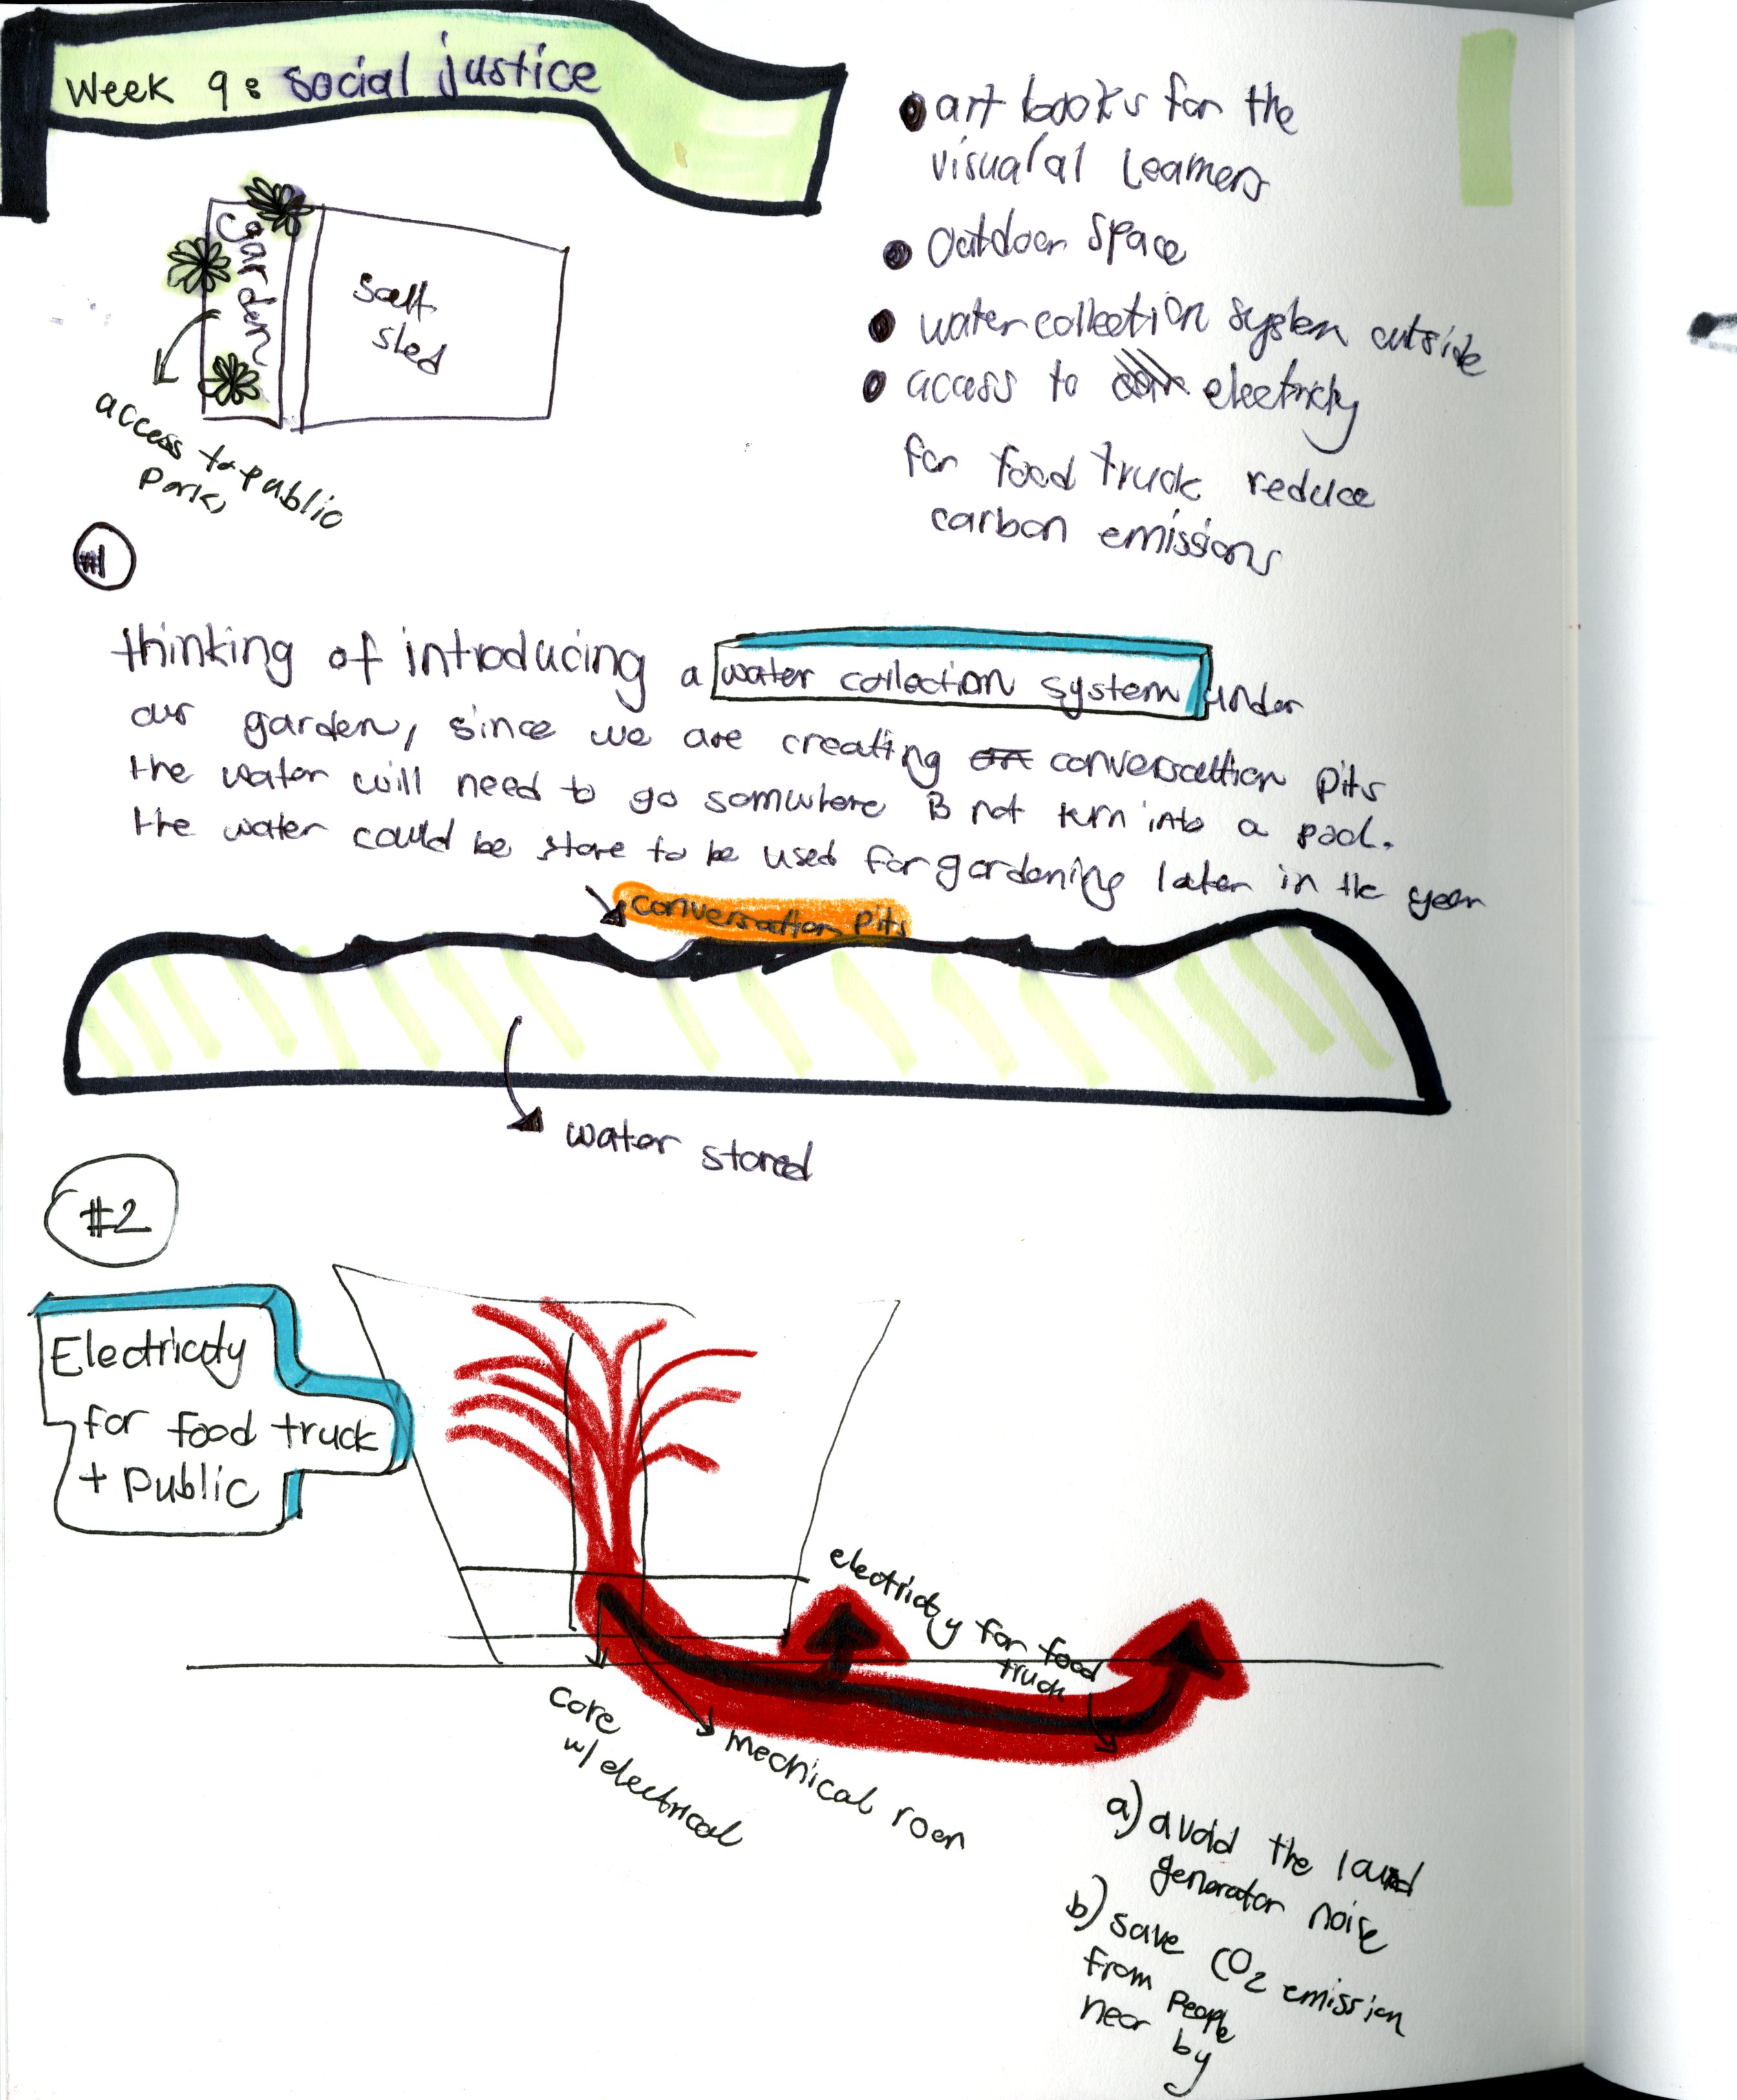 Week 9: social justice
garden
Salt
sled
access to public
Park
• art books for the
visualal Learners
• Outdoor Space
• water collection system outside
• access to electricity
for food truck reduce
carbon emissions
#1
thinking of introducing a water collection system under
our garden, since we are creating conversattion pits
the water will need to go somwhere & not turn into a pool.
the water could be store to be used for gardening later in the year
conversation pits
water stored
#2
Electricity
for food truck
+ Public
electricity for food
truck
core
w/ electrical
mechical room
a) avoid the loud
generator noise
b) save CO2 emission
from people
near by